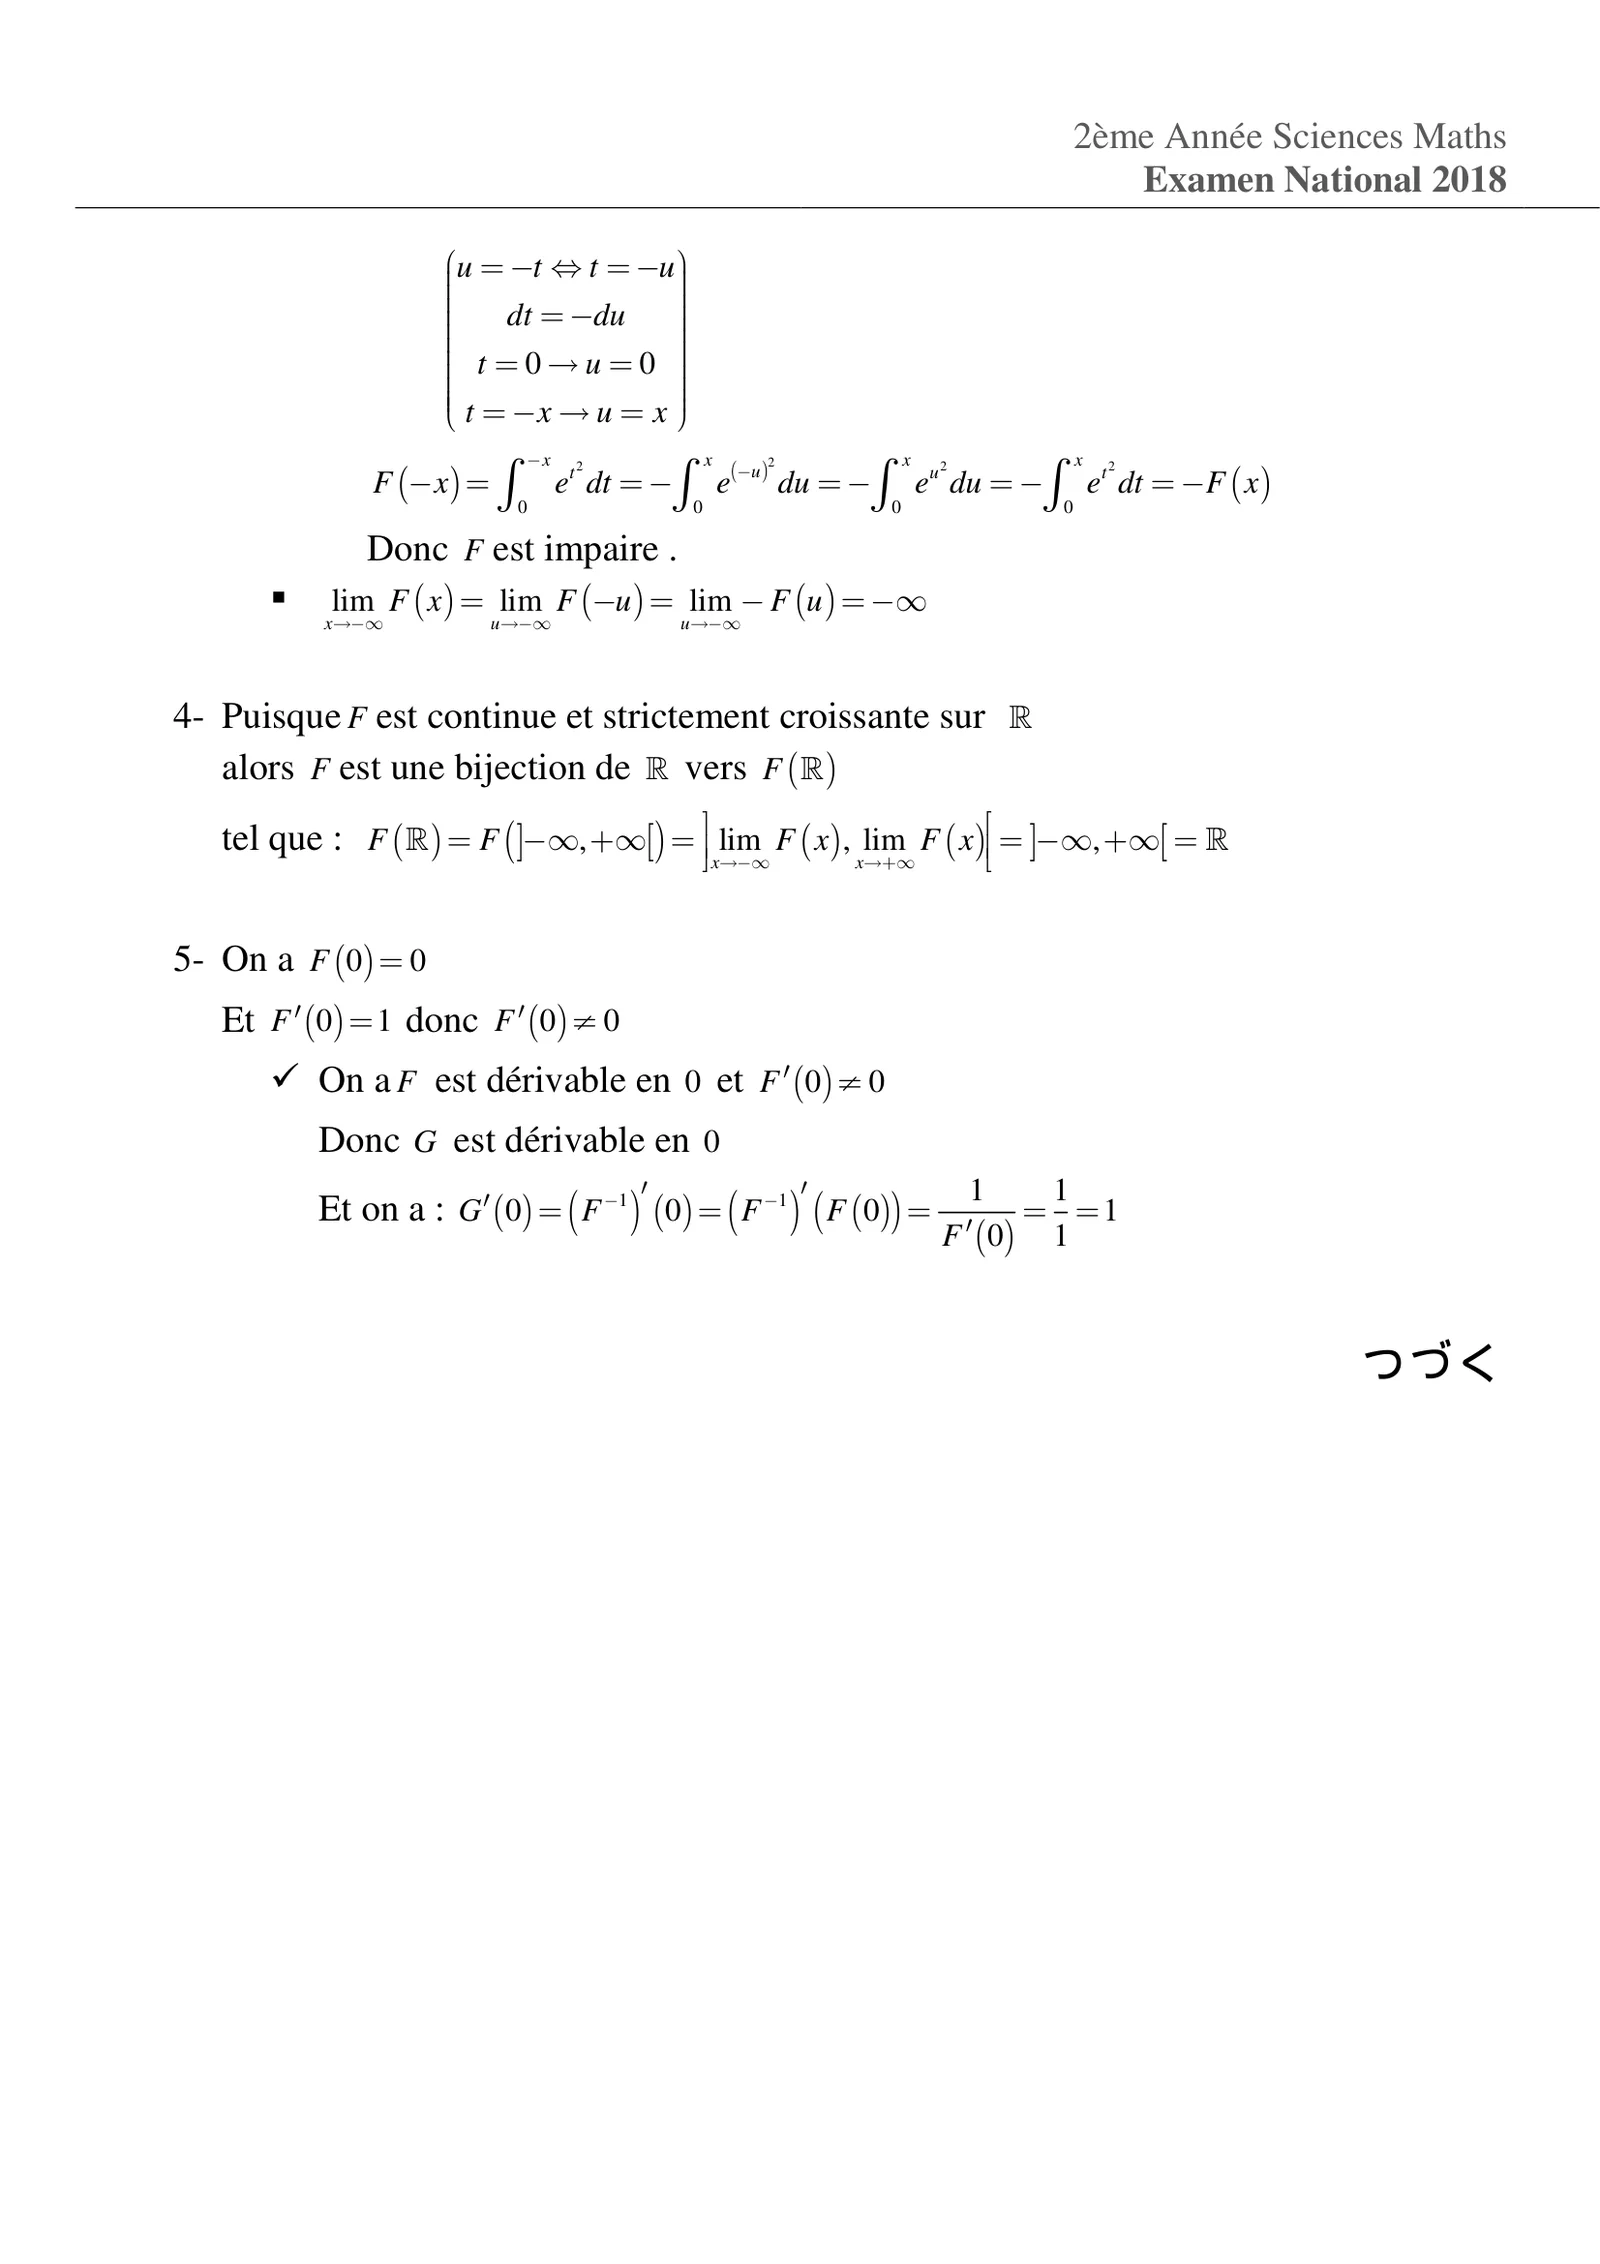 2ème Année Sciences Maths
Examen National 2018
u = −t ⇔ t = −u
dt = −du
t = 0 → u = 0
t = −x → u = x
F(−x) = ∫₀^{−x} e^{t²} dt = −∫₀^{x} e^{(−u)²} du = −∫₀^{x} e^{u²} du = −∫₀^{x} e^{t²} dt = −F(x)
Donc F est impaire .
▪ lim_{x→−∞} F(x) = lim_{u→−∞} F(−u) = lim_{u→−∞} −F(u) = −∞
4- Puisque F est continue et strictement croissante sur ℝ
alors F est une bijection de ℝ vers F(ℝ)
tel que : F(ℝ) = F(]−∞,+∞[) = ]lim_{x→−∞} F(x), lim_{x→+∞} F(x)[ = ]−∞,+∞[ = ℝ
5- On a F(0) = 0
Et F′(0) = 1 donc F′(0) ≠ 0
✓ On a F est dérivable en 0 et F′(0) ≠ 0
Donc G est dérivable en 0
Et on a : G′(0) = (F⁻¹)′(0) = (F⁻¹)′(F(0)) = 1/F′(0) = 1/1 = 1
つづく